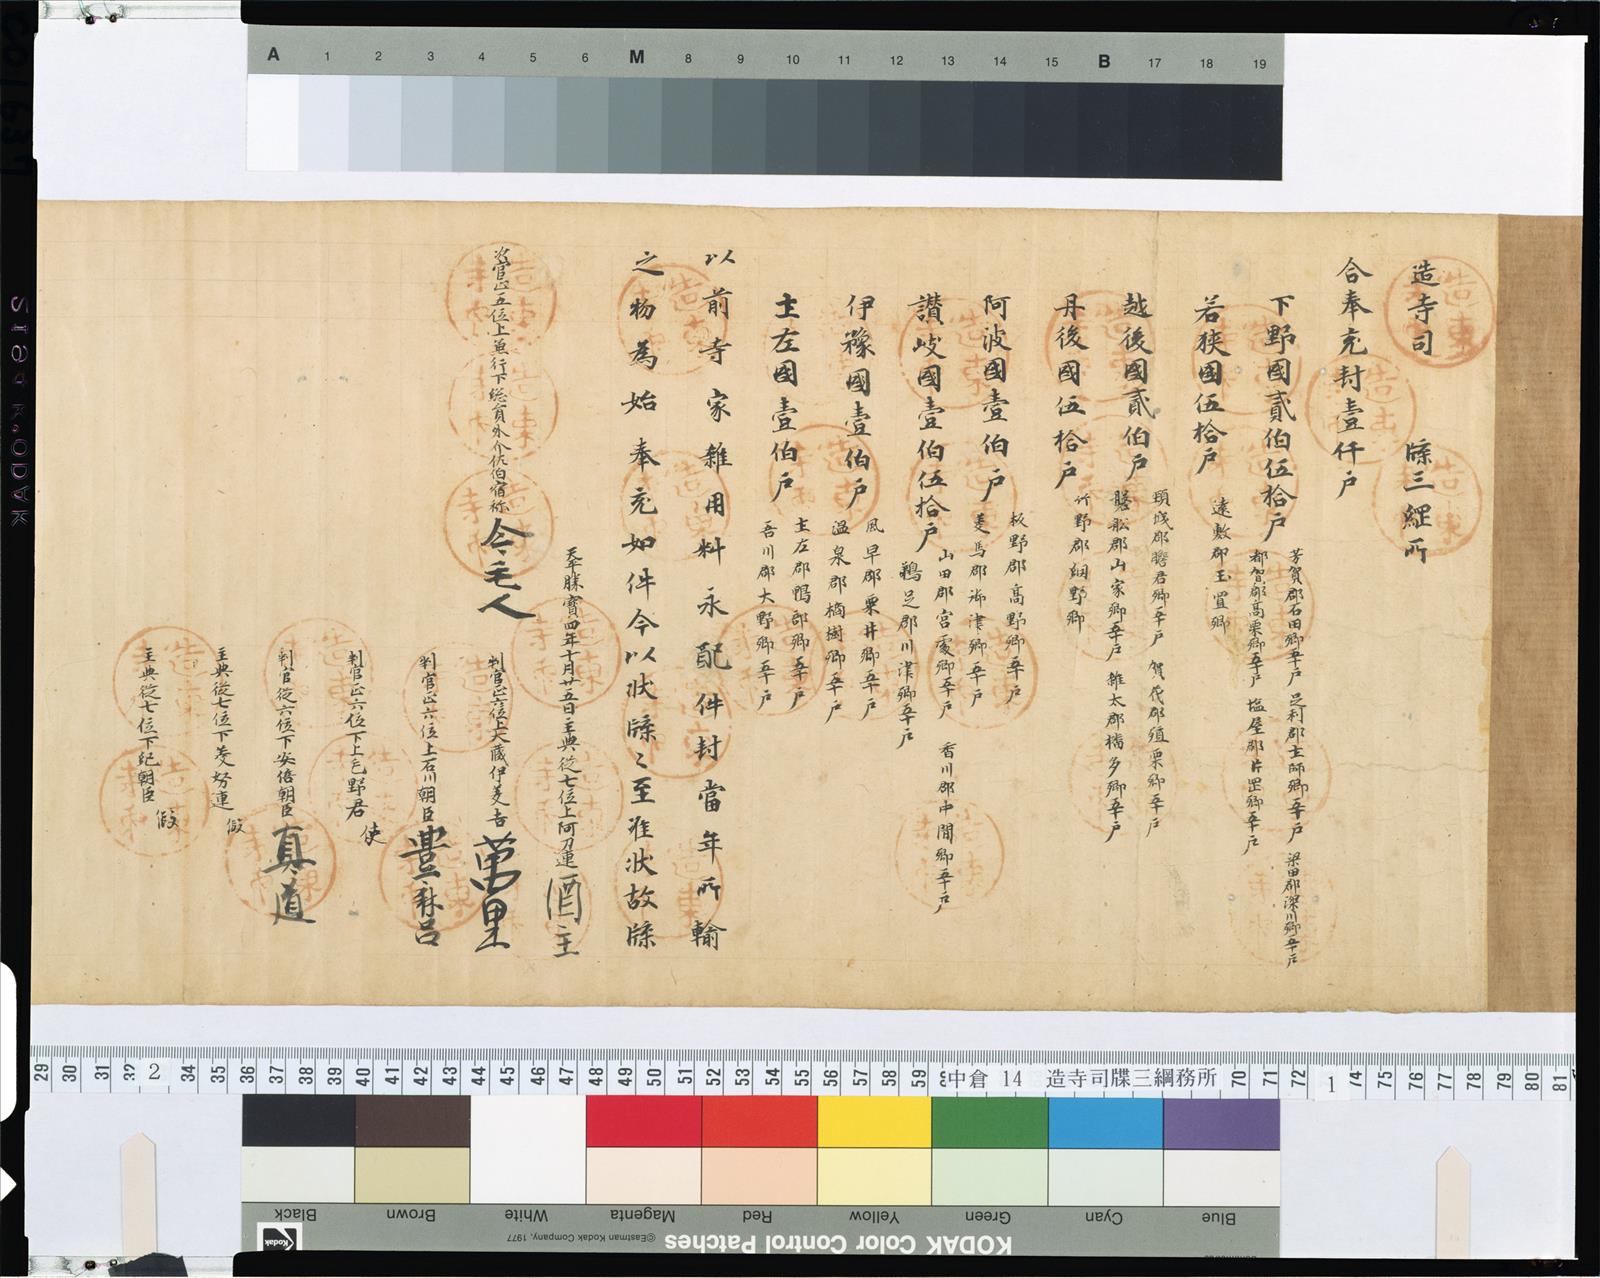 造寺司　牒三綱所
合奉充封壹仟戸
下野國貳伯伍拾戸
芳賀郡石田郷五十戸　足利郡土師郷五十戸　梁田郡深川郷五十戸
都賀郡高栗郷五十戸　塩屋郡片罡郷五十戸
若狭國伍拾戸
遠敷郡玉置郷
越後國貳伯戸
頸城郡膽君郷五十戸　賀茂郡殖栗郷五十戸
膽舩郡山家郷五十戸　雜太郡幡多郷五十戸
丹後國伍拾戸
竹野郡網野郷
阿波國壹伯戸
板野郡高野郷五十戸
美馬郡御津郷五十戸
讃岐國壹伯伍拾戸
山田郡宮處郷五十戸　香川郡中間郷五十戸
鵜足郡川津郷五十戸
伊豫國壹伯戸
風早郡粟井郷五十戸
温泉郡橘樹郷五十戸
土左國壹伯戸
土左郡鴨部郷五十戸
吾川郡大野郷五十戸
以前寺家雜用料永配件封當年所輸
之物為始奉充如件今以状牒〻至准状故牒
天平勝寳四年十月廿五日主典従七位上阿刀連酒主
次官正五位上兼行下総員外介佐伯宿祢今毛人
判官正六位上大蔵伊美吉萬里
判官正六位上石川朝臣豊麻呂
判官正六位下上毛野君使
判官従六位下安倍朝臣真道
主典従七位下美努連假
主典従七位下紀朝臣假
A 1 2 3 4 5 6 M 8 9 10 11 12 13 14 15 B 17 18 19
29 30 31 32 2 34 35 36 37 38 39 40 41 42 43 44 45 46 47 48 49 50 51 52 53 54 55 56 57 58 59 中倉 14 造寺司牒三綱務所 70 71 72 1 74 75 76 77 78 79 80 81
Black Brown White Magenta Red Yellow Green Cyan Blue
Kodak ©Eastman Kodak Company, 1977 KODAK Color Control Patches